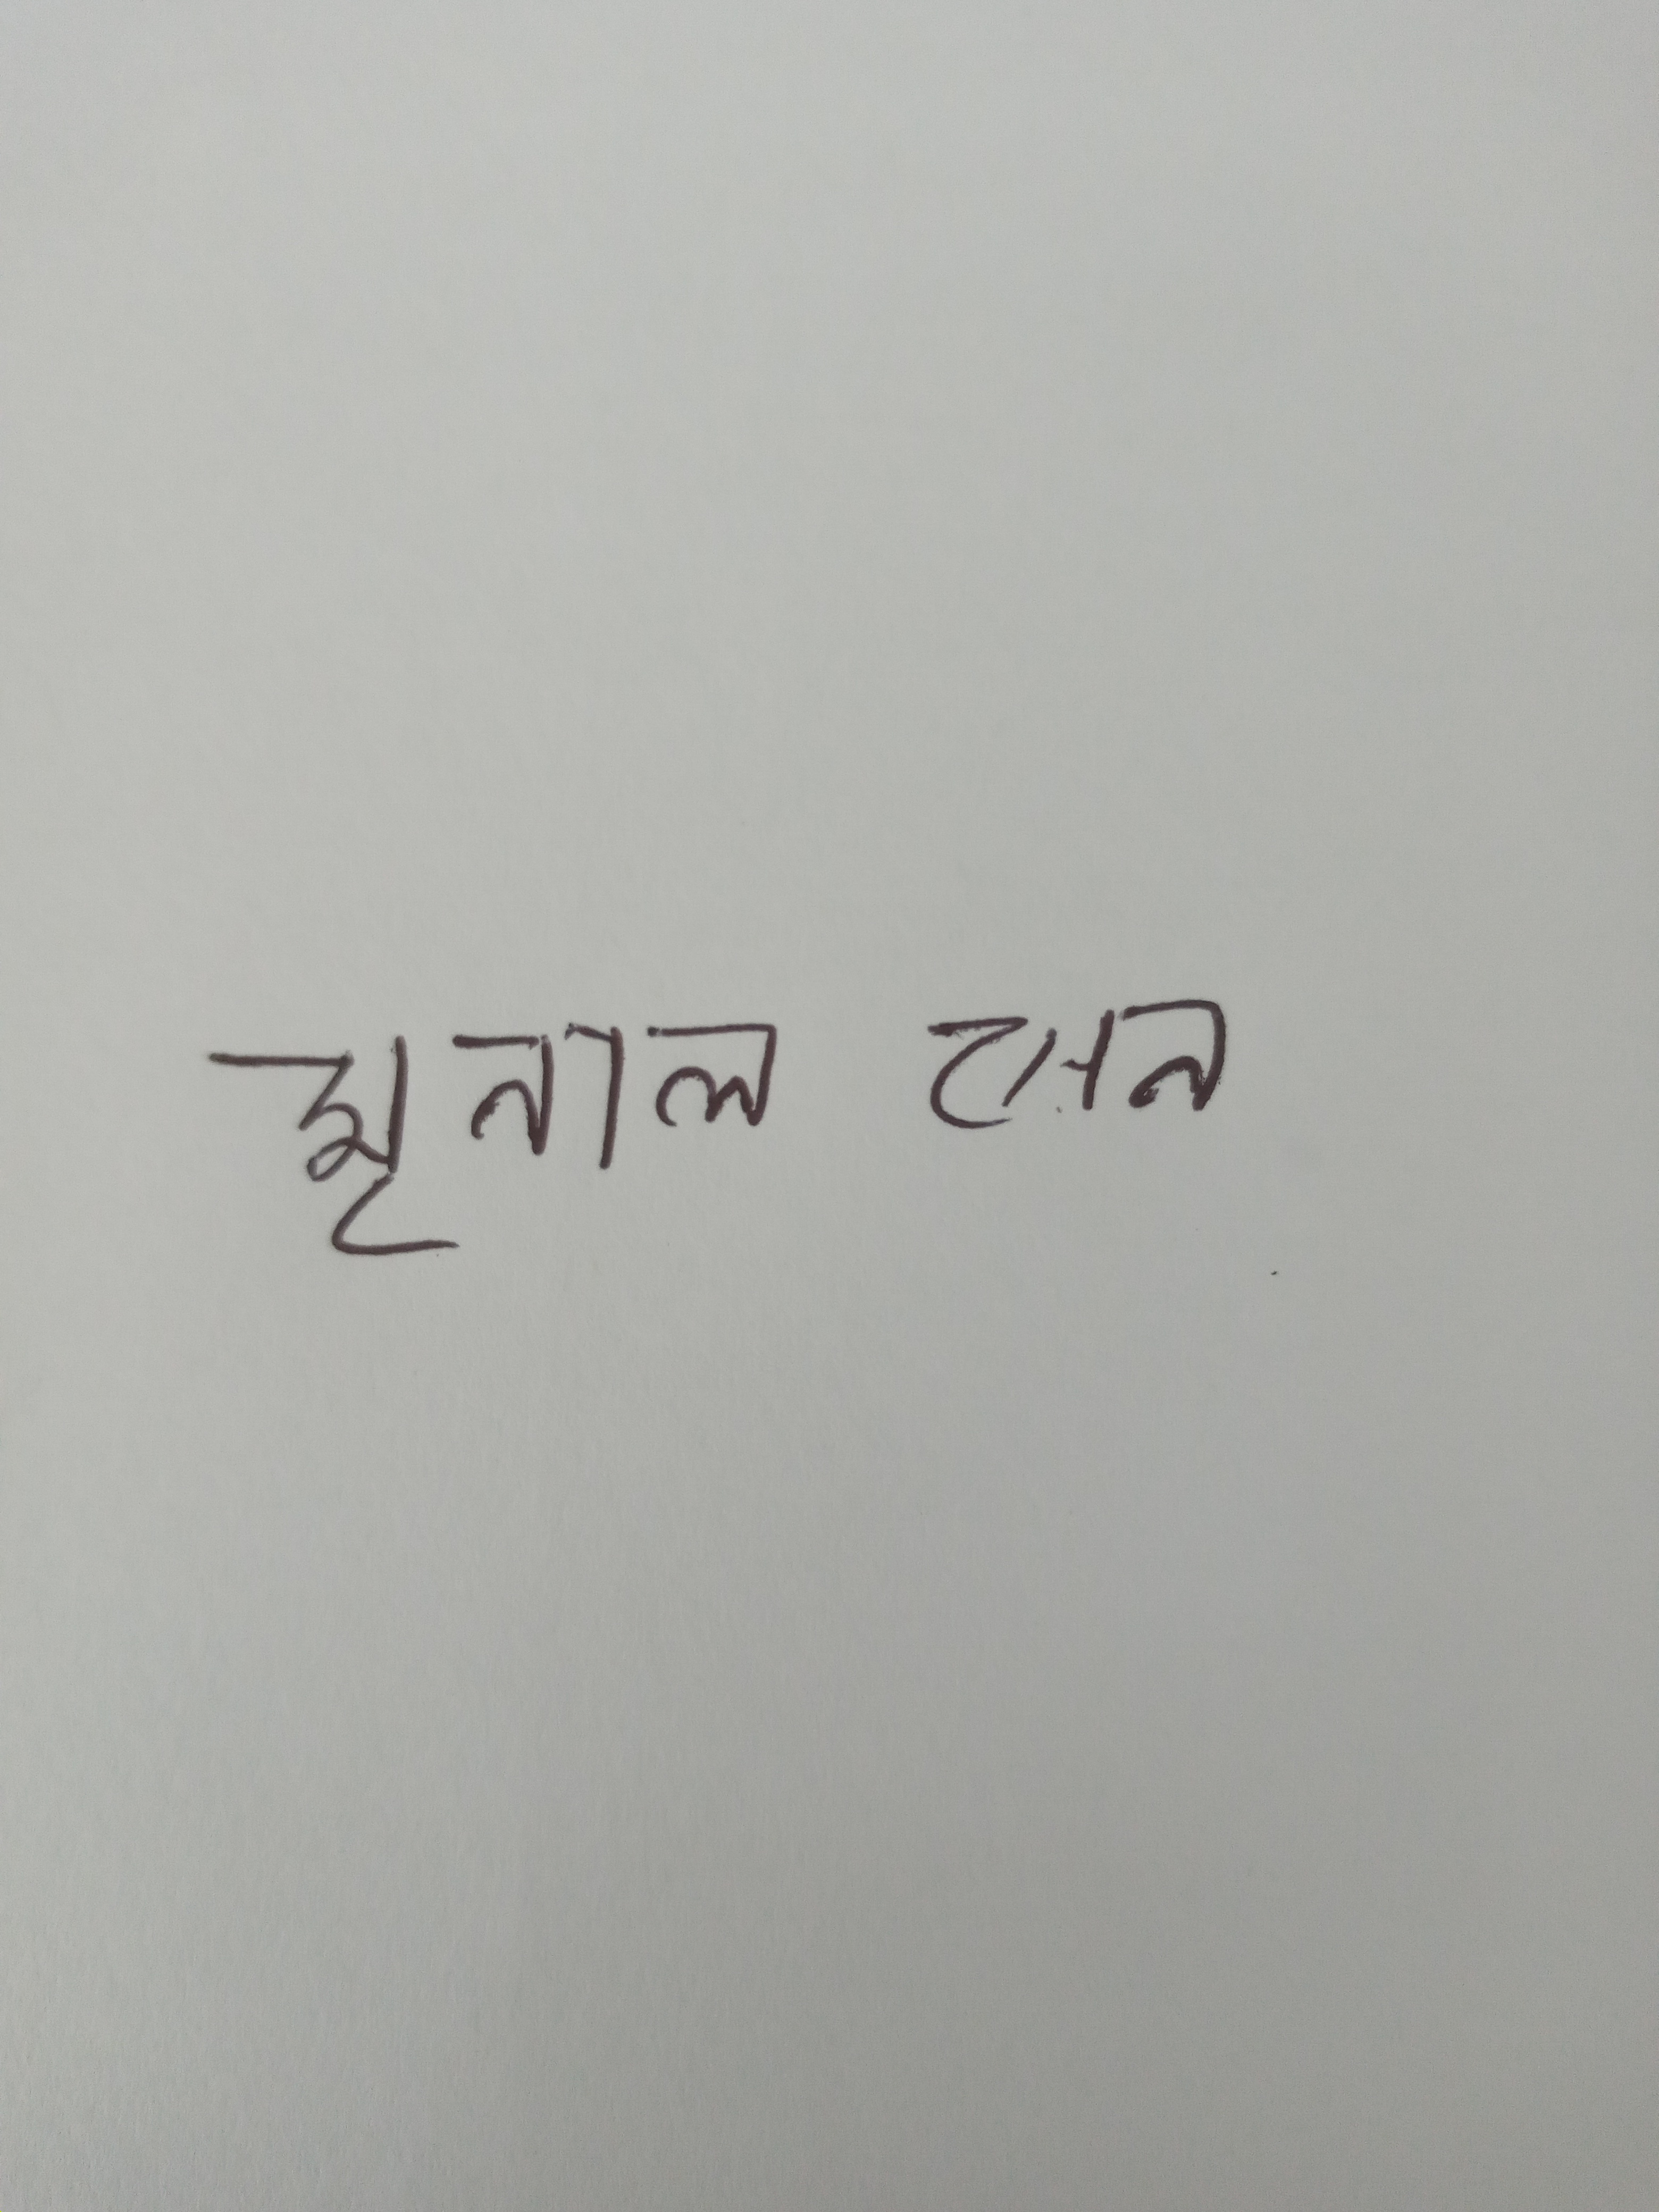 মৃনাল সেন